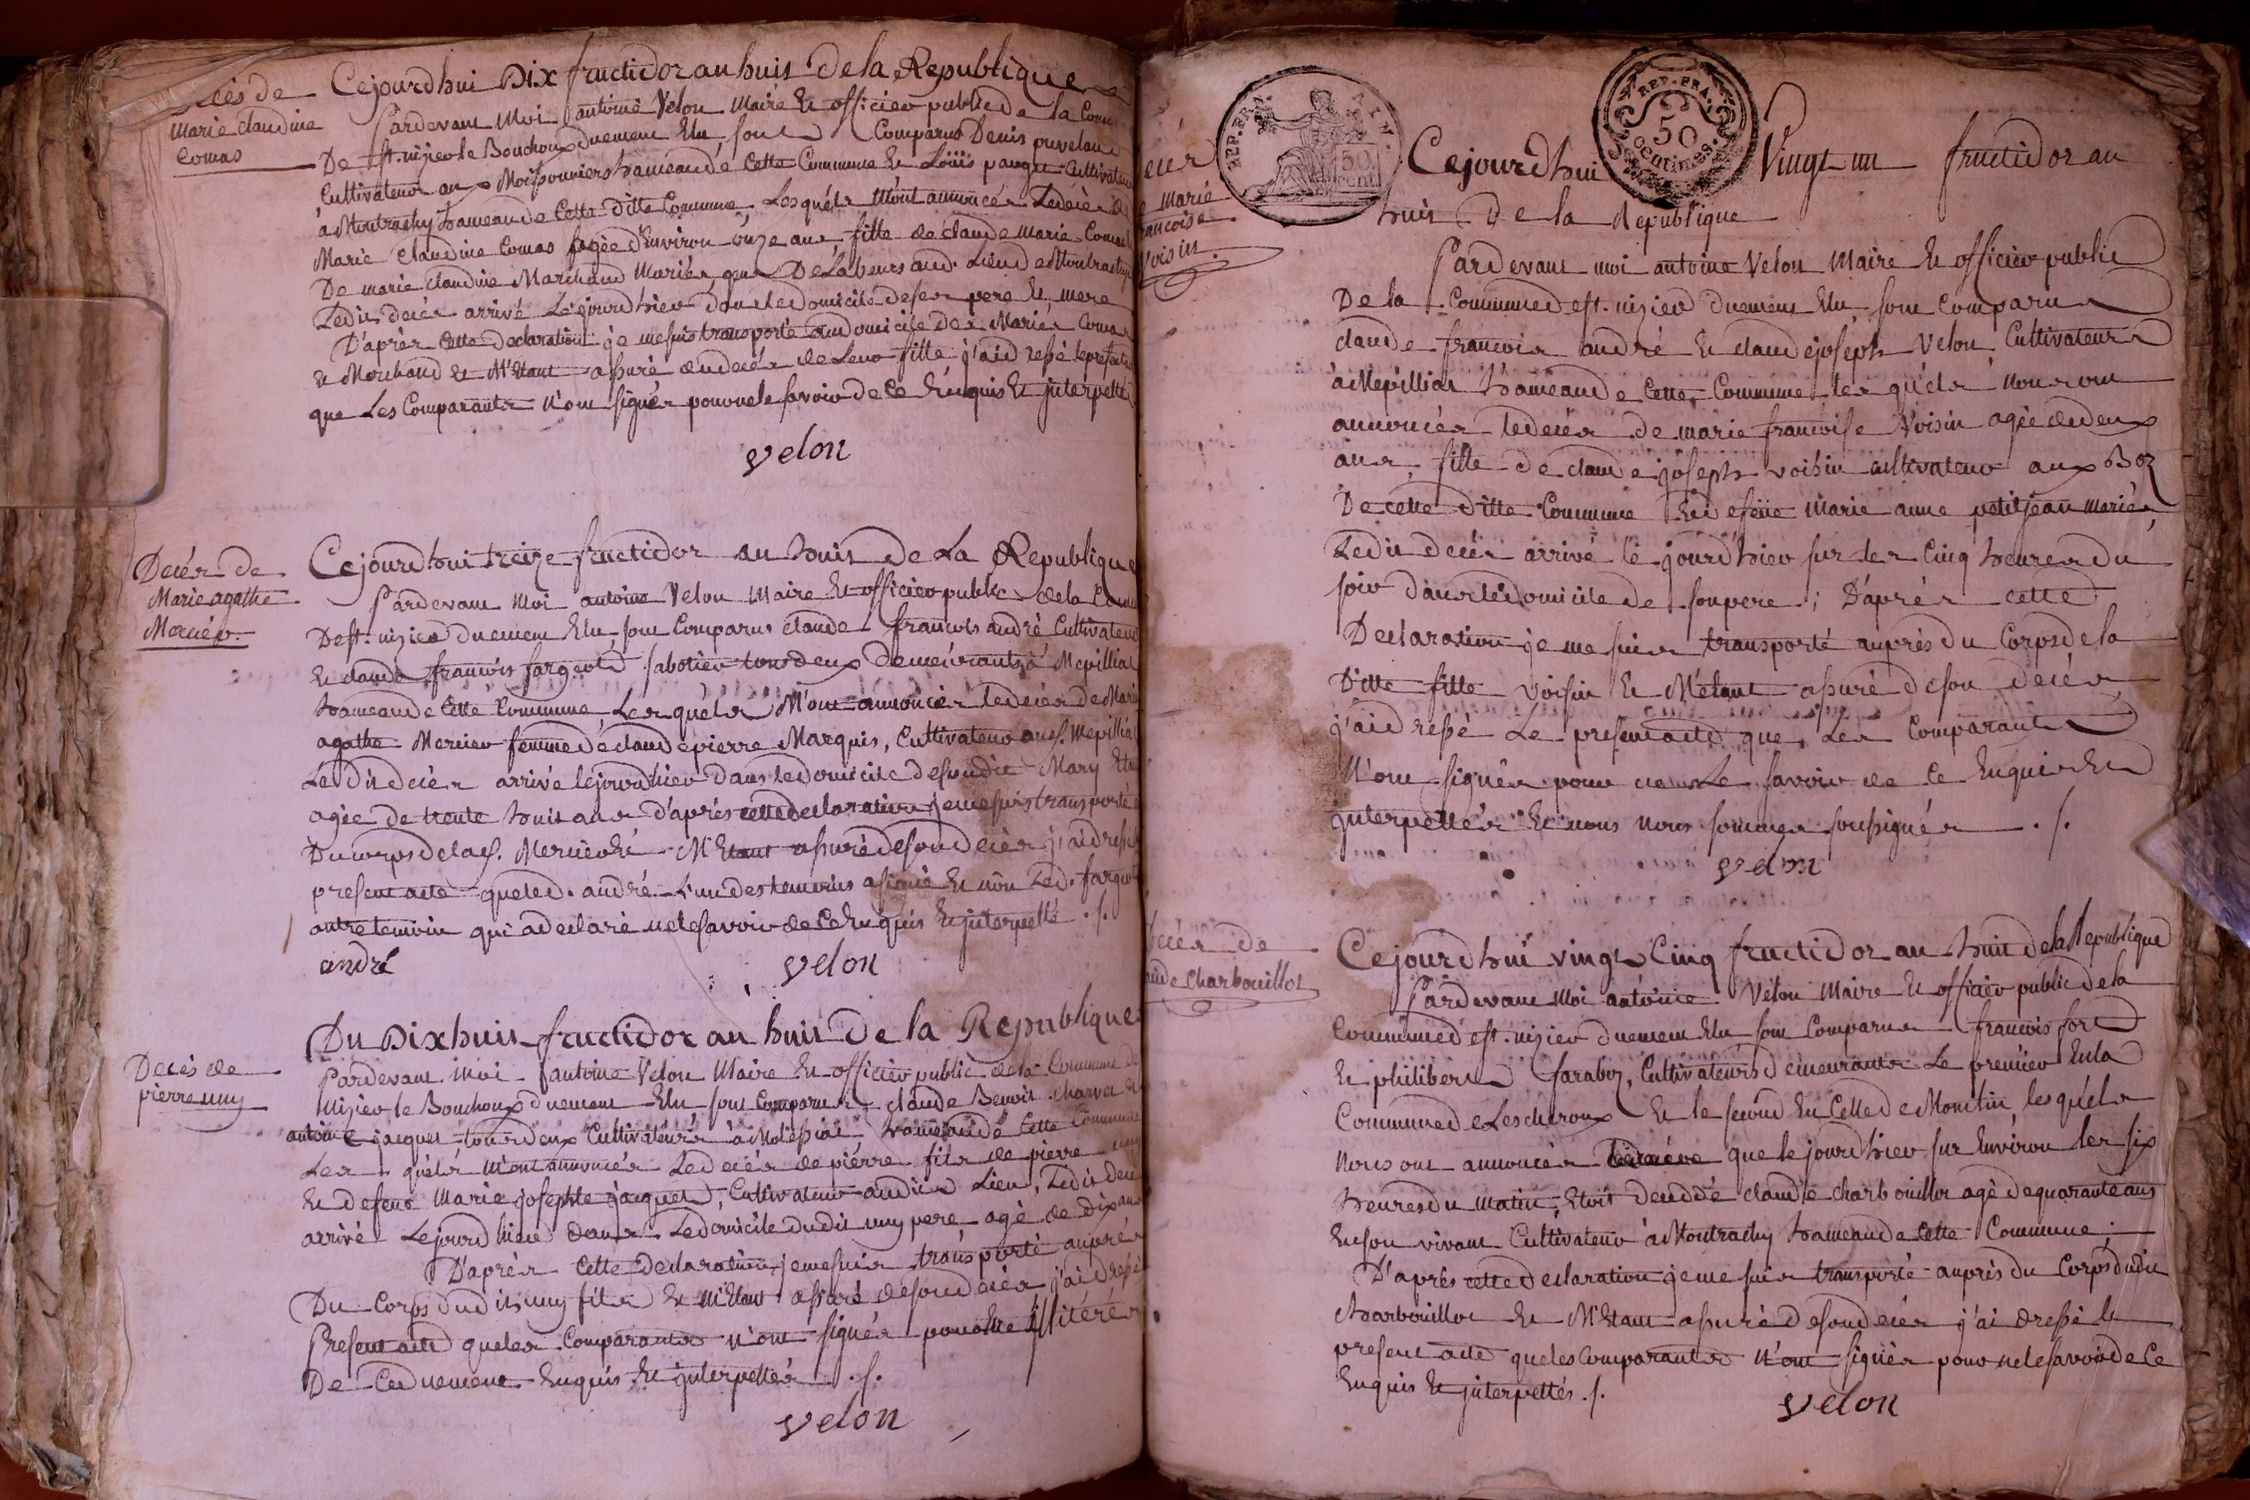 Décès de
marie claudine
Comas
Cejourdhui Dix fructidor an huit de la Republique
Pardevant Moi antoine Velon Maire et officier public de la Com
De st. nizier le Bouchoux duement Elu sont Comparus Denis
Cultivateur aux Moissonniers hameau de cette Commune et Loüis Cultivateur
à Montrachy hameau de Cette ditte Commune, Lesquéls M'ont annoncés Ledécès de
Marie Claudine Comas agée d'Environ onze ans fille de claude marie Comas
De marie claudine Marchand Mariés, aud. Lieu de Montrachy
Ledit décès arrivé Lejourdhier dans le domicile de ses pere et mere
D'après Cette Declaration je me suis transporté au domicile des Mariés Comas
et Marchand et M'étant assuré du décès de Leur fille j'ai dressé le présent
que Les Comparants N'ont signés pour ne le savoir de ce Enquis et jnterpellés
velon
Decés de
Marie agathe
Mercier.
Cejourdhui treize fructidor an huit de La Republique
Pardevant Moi antoine Velon Maire et officier public de la Com
De st. nizier duement Elu sont Comparus claude francois andré Cultivateur
et claude francois fargeot sabotier tous deux demeurants à Mépilliat
hameau de Cette Commune, Lesquéls M'ont annoncés ledécès de Marie
agathe Mercier femme de claude pierre Marquis, Cultivateur aud. Mépilliat
Ledit décès arrivé lejourdhier dans le domicile de sondit Mary
agée de trente huit ans d'après cette declaration je me suis transporté
Du corps de lad. Mercier et M'Etant assuré de son décès j'ai dressé
present acte que led. andré L'un des temoins a signé et non Led. fargeot
autre temoin qui a declaré ne le savoir de Ce Enquis et jnterpellé ./.
andré
velon
Decés de
pierre uny
Du Dixhuit fructidor an huit de la Republique
Pardevant Moi antoine Velon Maire et officier public de la Commune de
Nizier le Bouchoux duement Elu sont Comparus claude Benoit Charvet et
antoine jacquet tous deux Cultivateurs à Molissiat hameau de Cette Commune
Lesquéls M'ont annoncés Ledécés de pierre fils de pierre uny
et defeue Marie josephte jacquet, Cultivateur audit Lieu, Ledit décès
arrivé Lejourdhier dans Ledomicile dudit uny pere agé de dix ans
D'après Cette Declaration, je me suis transporté auprès
Du Corps dudit uny fils et M'Etant assuré de son décès j'ai dressé
Present acte que les Comparants n'ont signés pour être jllitérés
De Ce duement Enquis et jnterpellés ./.
velon
REP. FRA.
50
cent
REP. FRA.
50
centimes.
Marie
francoise
Voisin.
Cejourdhui Vingt un fructidor an
huit de la Republique
Pardevant moi antoine Velon Maire et officier public
De la Commune de st. nizier duement Elu, sont Comparu
claude francois andré et claude joseph Velon, Cultivateurs
à Mépilliat hameau de Cette Commune les quéls nous ont
annoncés ledécés de marie francoise Voisin agée de deux
ans, fille de claude joseph voisin cultivateur aux Boz
De cette ditte Commune et defeüe marie anne petitjean mariés,
Ledit décès arrivé le jourdhier sur les Cinq heures du
soir dans le domicile de son pere; D'après cette
Declaration je me suis transporté auprès du Corps de la
Ditte fille voisin et M'etant assuré de son décès
j'ai dressé Le present acte que, Les Comparants
N'ont signés pour ne Le savoir de ce Enquis et
jnterpellés et nous nous sommes soussignés ./.
velon
Décès de
claude charbouillot
Cejourdhui vingt Cinq fructidor an huit de la Republique
Pardevant Moi antoine Velon Maire et officier public de la
Commune de st. nizier duement Elu, sont Comparus francois fort
et philibert faraboz, Cultivateurs demeurants Le premier En la
Commune de Lescheroux et le second En Celle de Monctin, lesquéls
Nous ont annoncés que le jourdhier sur Environ les six
heures du matin, Etoit decédé claude charbouillot agé de quarante ans
En son vivant Cultivateur à Montrachy hameau de Cette Commune;
D'après cette declaration je me suis transporté auprès du Corps dudit
charbouillot et M'Etant assuré de son décès j'ai dressé le
present acte que les Comparants N'ont signés pour ne le savoir de Ce
Enquis et jnterpellés ./.
velon